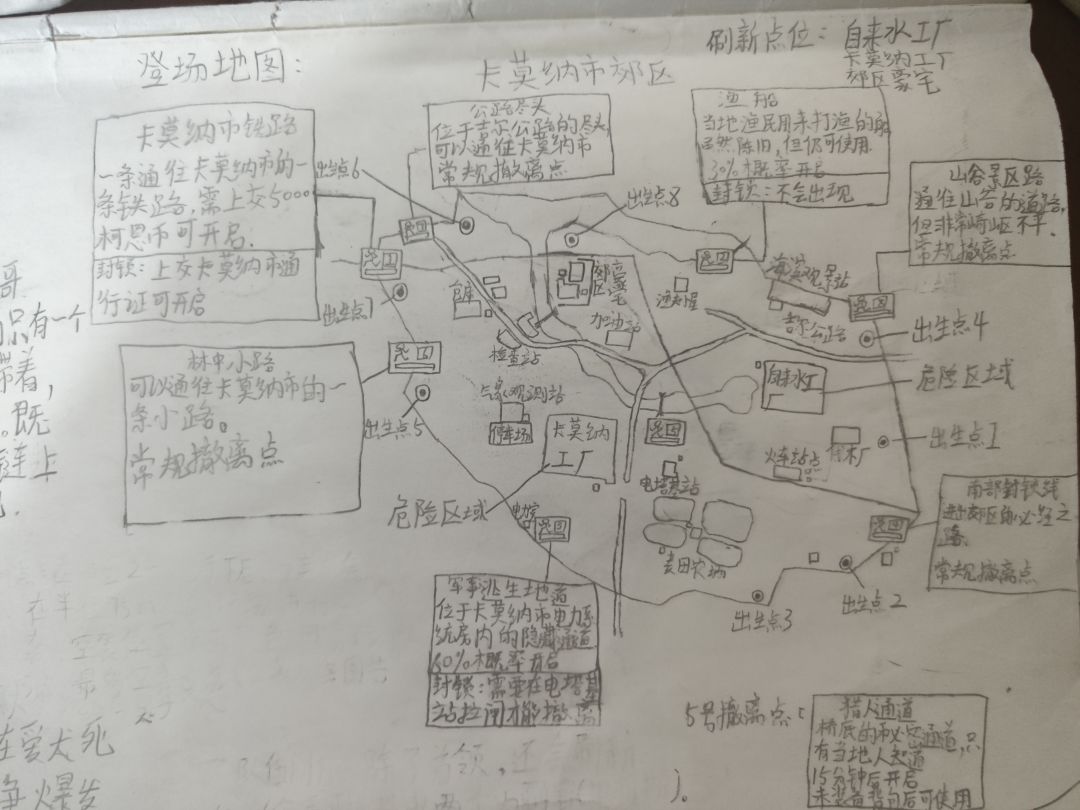 刷新点位：自来水工厂
卡莫纳工厂
郊区豪宅
登场地图：
卡莫纳市郊区
卡莫纳市铁路
一条通往卡莫纳市的一
条铁路，需上交5000
柯恩币可开启.
封锁：上交卡莫纳市通
行证可开启
公路尽头
位于吉尔公路的尽头，
可以通往卡莫纳市
常规撤离点
渔船
当地渔民用来打渔的船
虽然陈旧，但仍可使用.
30%概率开启
封锁：不会出现
山谷景区路
通往山谷的道路，
但非常崎岖不平.
常规撤离点
出生点6
出生点8
出生点7
仓库
郊区豪宅
加油站
渔夫小屋
海滨观景站
吉尔公路
出生点4
检查站
林中小路
可以通往卡莫纳市的一
条小路。
常规撤离点
出生点5
气象观测站
停车场
卡莫纳
工厂
自来水工
厂
危险区域
出生点1
伐木厂
火车站点
电塔基站
危险区域
麦田农场
南部封锁线
进郊区的必经之
路.
常规撤离点
出生点3
出生点2
军事逃生地道
位于卡莫纳市电力系
统房内的隐藏通道
60%概率开启
封锁：需要在电塔基
站拉闸才能撤离
5号撤离点：
猎人通道
桥底的秘密通道，只
有当地人知道
15分钟后开启
哥
只有一个
带着，
。既
链上
在爱犬死
争爆发